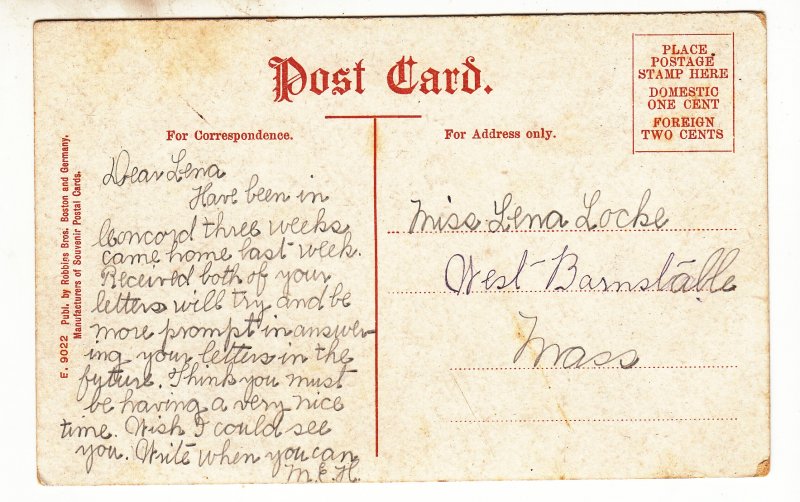 Post Card.
PLACE
POSTAGE
STAMP HERE
DOMESTIC
ONE CENT
FOREIGN
TWO CENTS
For Correspondence.
For Address only.
Dear Lena
Have been in
Concord three weeks
came home last week.
Received both of your
letters will try and be
more prompt in answer-
ing your letters in the
future. Think you must
be having a very nice
time. Wish I could see
you. Write when you can
M.E.H.
Miss Lena Locke
West Barnstable
Mass
E. 9022 Publ. by Robbins Bros. Boston and Germany,
Manufacturers of Souvenir Postal Cards.